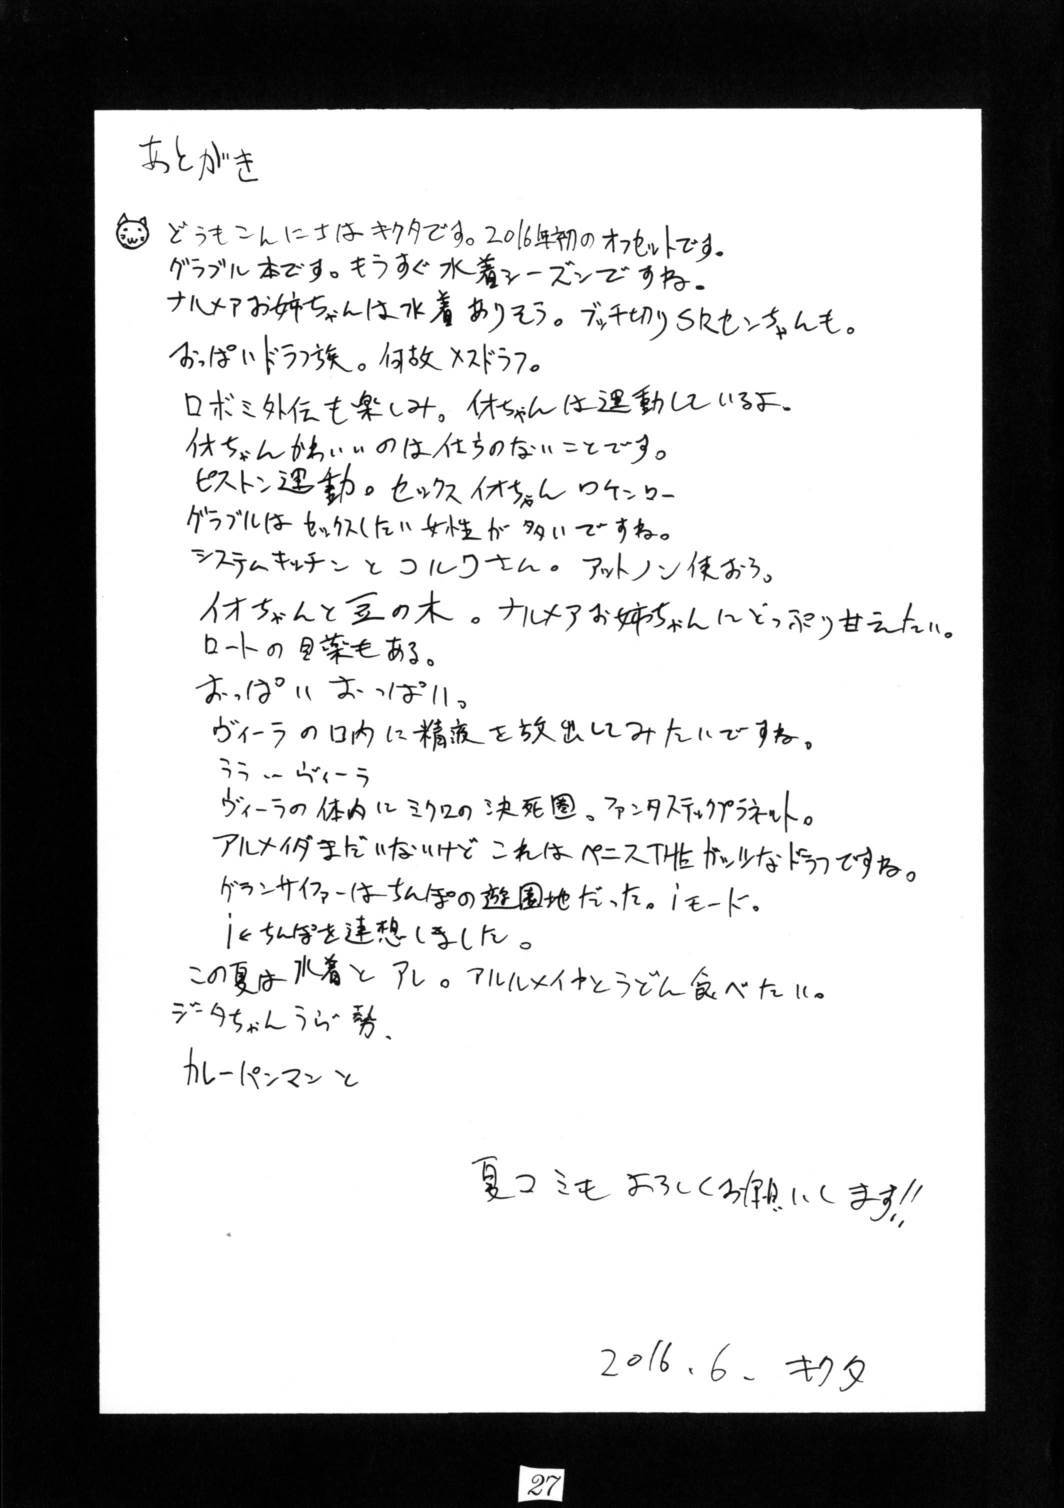 あとがき
どうもこんにちはキクタです。2016年初のオフセットです。
グラブル本です。もうすぐ水着シーズンですね。
ナルメアお姉ちゃんは水着ありそう。ブッチ切りSRセンちゃんも。
おっぱいドラフ族。何故メスドラフ。
ロボミ外伝も楽しみ。イオちゃんは運動しているよ。
イオちゃんかわいいのは仕方のないことです。
グラブルはセックスしたい女性が多いですね。
システムキッチンとコルワさん。アットノン使おう。
イオちゃんと豆の木。ナルメアお姉ちゃんにどっぷり甘えたい。
ロートの目薬もある。
おっぱい おっぱい。
ヴィーラの口内に精液を放出してみたいですね。
うう…ヴィーラ
ヴィーラの体内にミクロの決死圏。ファンタスティックプラネット。
アルメイダまだいないけどこれはペニスTHEガッツなドラフですね。
グランサイファーはちんぽの遊園地だった。iモード。
i←ちんぽを連想しました。
この夏は水着とアレ。アルルメイヤとうどん食べたい。
ジータちゃん 勢、
カレーパンマンと
夏コミもよろしくお願いします!!
2016.6. キクタ
27